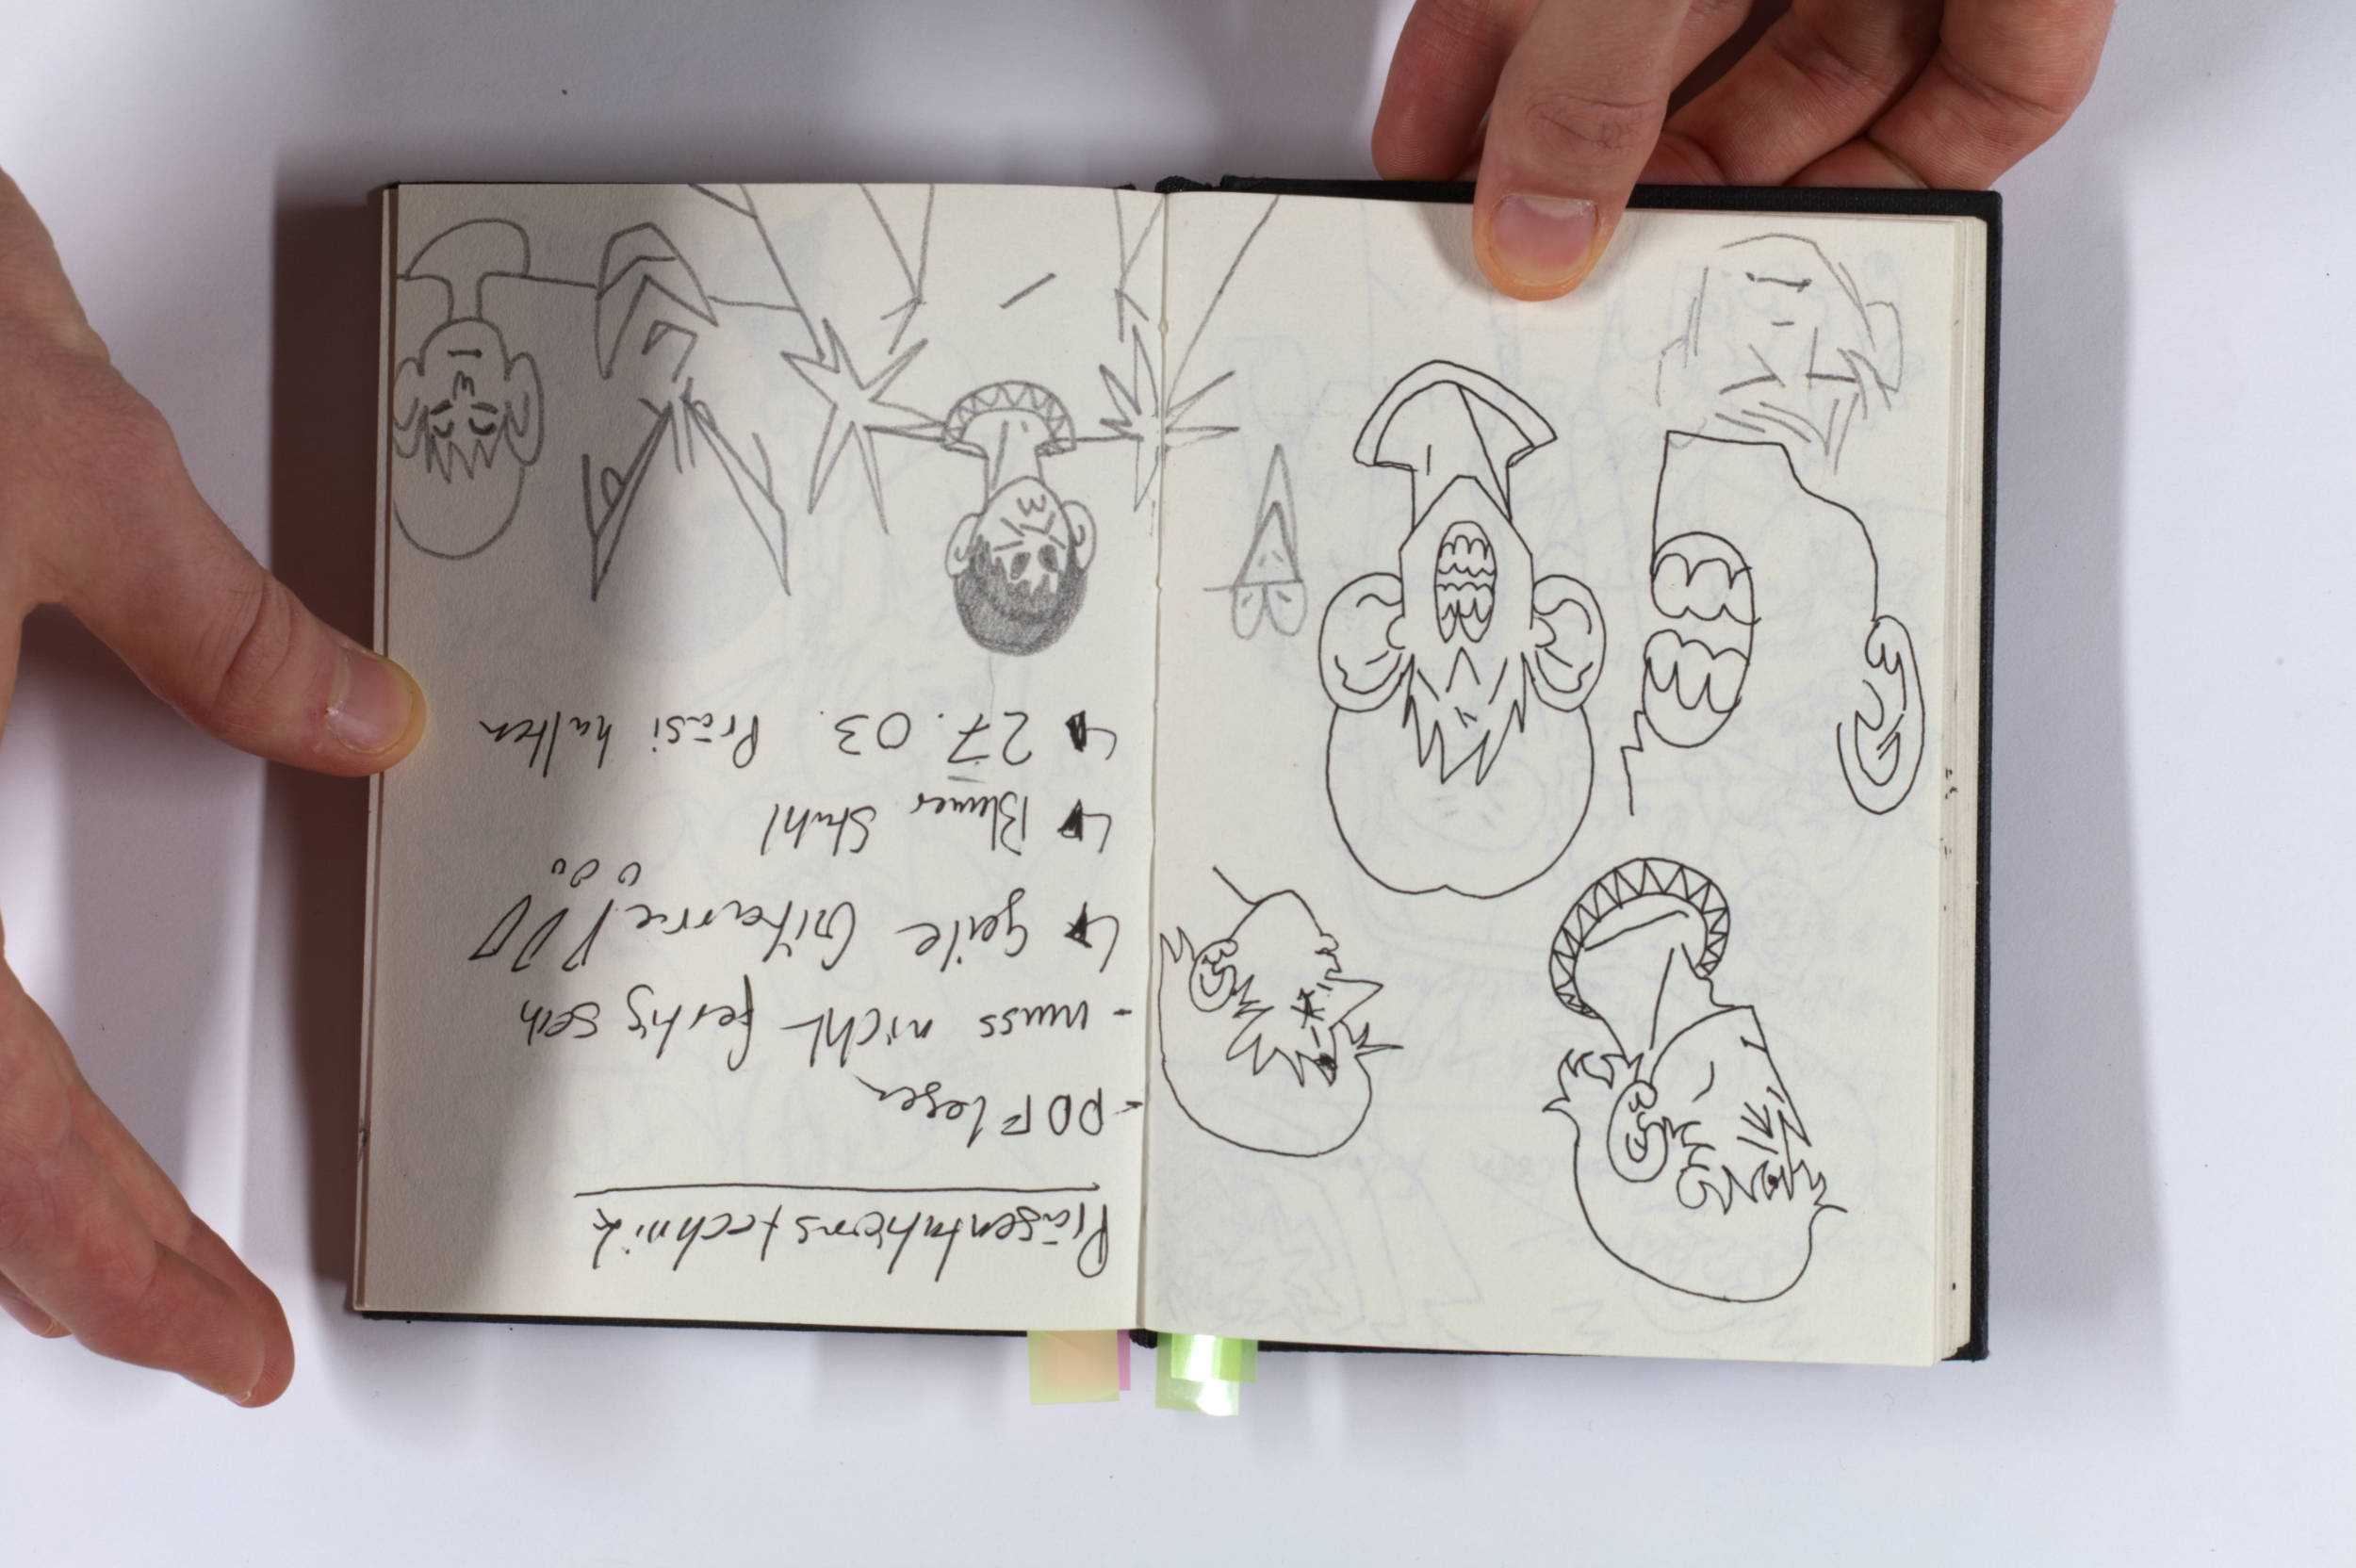 Präsentationstechnik
- PDF lesen
- muss nicht fertig sein
↳ geile Gitarre!
↳ Blumer Stuhl
↳ 27.03. Präsi halten